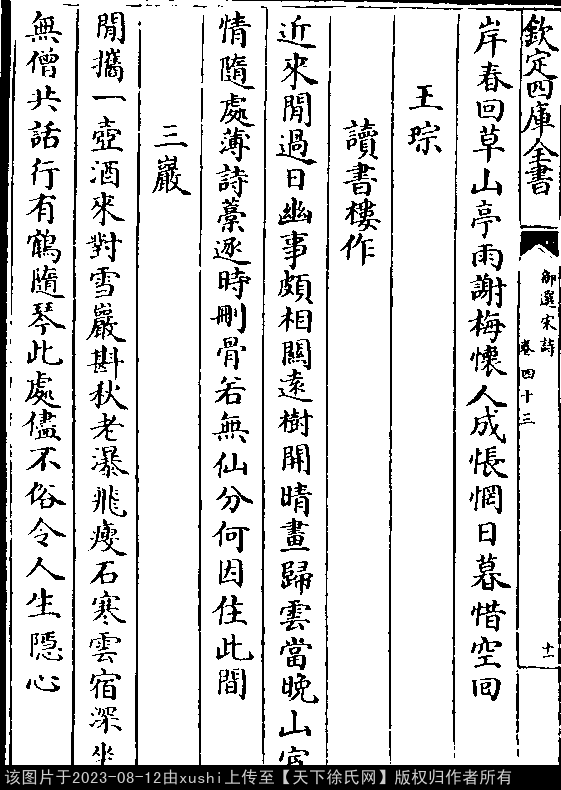 欽定四庫全書
御選宋詩
卷四十三
十一
岸春回草山亭雨謝梅懷人成悵惘日暮惜空回
王琮
讀書樓作
近來閒過日幽事頗相關遠樹開晴畫歸雲當晚山宦
情隨處薄詩藁逐時刪骨若無仙分何因住此間
三巖
閒攜一壺酒來對雪巖斟秋老瀑飛瘦石寒雲宿深坐
無僧共話行有鶴隨琴此處儘不俗令人生隱心
该图片于2023-08-12由xushi上传至【天下徐氏网】版权归作者所有